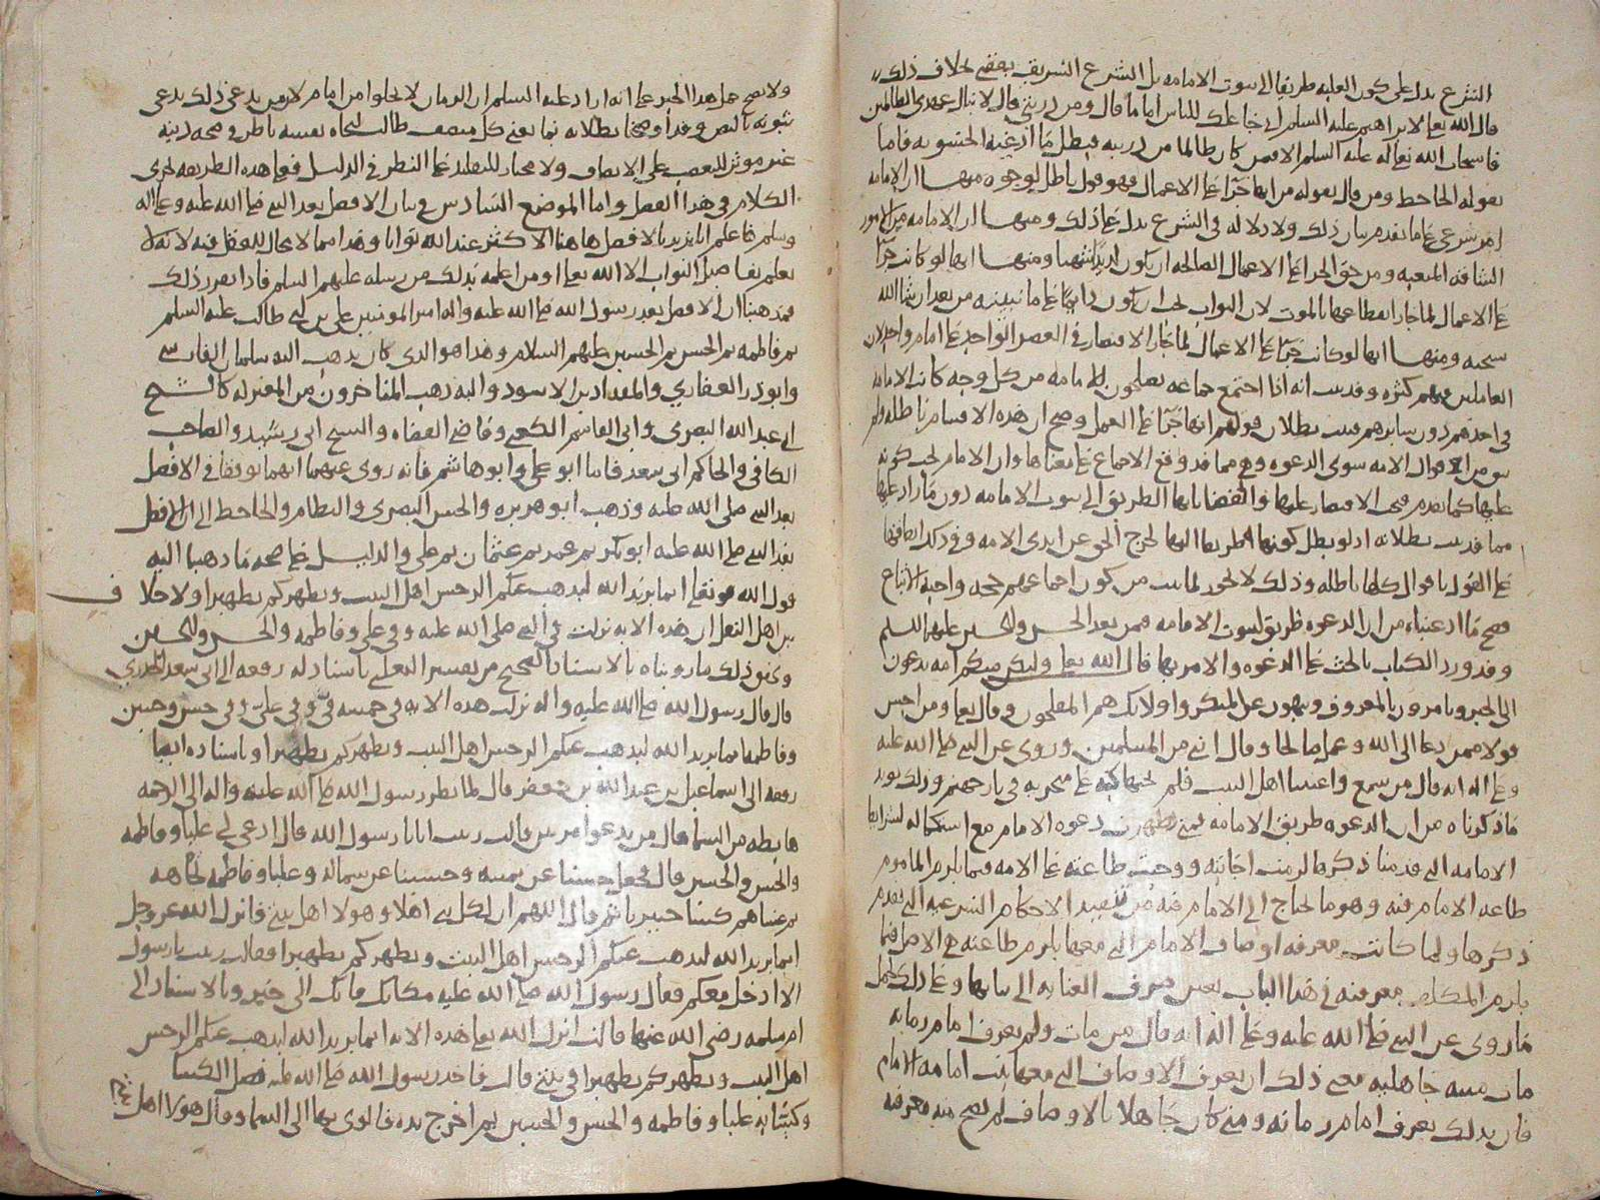 الشرع يدل على كون الغلبه طريقا الى ثبوت الامامه بل الشرع الشريف يقضي بخلاف ذلك
قال الله تعالى لابراهيم عليه السلم اني جاعلك للناس اماما قال ومن ذريتي قال لا ينال عهدي الظالمين
فاستجاب الله تعالى له عليه السلم الا فمن كان ظالما من ذريته فبطل ما ادعته الحشويه فاما
قوله الجاحظ ومن قال بقوله من انها جزآ على الاعمال فهو قول باطل لوجوه منها ان الامامه
امر شرعي على ما تقدم بيان ذلك ولا دلاله في الشرع يدل على ذلك ومنها ان الامامه من الامور
الشاقه المتعبه ومن حق الجزا على الاعمال الصالحه ان يكون لذيذا شهيا ومنها انها لو كانت جزآ
على الاعمال لما جاز انقطاعها بالموت لان الثواب يجب ان يكون دايما على ما نبينه من بعد ان شا الله
سبحنه ومنها انها لو كانت جزآ على الاعمال لما جاز الاقتصار في العصر الواحد على امام واحد لان
العاملين فيهم كثره وقد ثبت انه اذا اجتمع جماعه يصلحون للامامه من كل وجه كانت الامامه
في احدهم دون سايرهم فثبت بطلان قولهم انها جزآ على العمل وصح ان هذه الاقسام باطله ولم
يبق من اقوال الامه سوى الدعوه وهي مما قد وقع الاجماع على معناها وان الامام يجب كونه
عليها كما تقدم فيجب الاقتصار عليها والقضا بانها الطريق الى ثبوت الامامه دون ما زاد عليها
مما قد ثبت بطلانه اذ لو بطل كونها طريقا اليها لخرج الحق عن ايدي الامه وفي ذلك اتفاقها
على القول باقوال كلها باطله وذلك لا يجوز لما ثبت من كون اجماعهم حجه واجبه الاتباع
فصح ما ادعيناه من ان الدعوه طريق ثبوت الامامه فيمن بعد الحسن والحسين عليهم السلم
وقد ورد الكتاب بالحث على الدعوه والامر بها قال الله تعالى ولتكن منكم امه يدعون
الى الخير ويامرون بالمعروف وينهون عن المنكر واولئك هم المفلحون وقال تعالى ومن احسن
قولا ممن دعا الى الله وعمل صالحا وقال انني من المسلمين وروي عن النبي صلى الله عليه
وعلى اله انه قال من سمع واعيتنا اهل البيت فلم يجبها كبه الله على منخريه في نار جهنم وذلك يؤيد
ما ذكرناه من ان الدعوه طريق الامامه فمتى ظهرت دعوه الامام مع استكماله لشرايط
الامامه التي قدمنا ذكرها لزمت اجابته ووجبت طاعته على الامه فيما يلزم الماموم
طاعه الامام فيه وهو ما يحتاج الى الامام فيه من تنفيذ الاحكام الشرعيه التي تقدم
ذكرها ولما كانت معرفه اوصاف الامام التي معها يلزم طاعته هي الاصل فيما
يلزم المكلف معرفته في هذا الباب تعين صرف العنايه الى بيانها وعلى ذلك يحمل
ما روي عن النبي صلى الله عليه وعلى اله انه قال من مات ولم يعرف امام زمانه
مات ميته جاهليه فمعنى ذلك ان يعرف الاوصاف التي معها ثبت امامه الامام
فان بذلك يعرف امام زمانه ومتى كان جاهلا بالاوصاف لم يصح منه معرفه
ولا يصح حمل هذا الخبر على انه اراد عليه السلم ان الزمان لا يخلوا من امام لان من يدعي ذلك يدعي
ثبوته بالنص وقد اوضحنا بطلانه بما يغني كل منصف طالب لنجاه نفسه ناظر في صحه دينه
غير موثر للتعصب على الانصاف ولا مختار للتقليد على النظر في الدليل فعلى هذه الطريقه يجري
الكلام في هذا الفصل واما الموضع السادس في بيان الافضل بعد النبي صلى الله عليه وعلى اله
وسلم فاعلم انا نريد بالافضل هاهنا الاكثر عند الله ثوابا وهذا مما لا مجال للعقل فيه لانه لا
يعلم تفاصيل الثواب الا الله تعالى او من اعلمه بذلك من رسله عليهم السلم فاذا تقرر ذلك
فمذهبنا ان الافضل بعد رسول الله صلى الله عليه واله امير المومنين علي بن ابي طالب عليه السلم
ثم فاطمه ثم الحسن ثم الحسين عليهم السلام وهذا هو الذي كان يذهب اليه سلمان الفارسي
وابو ذر الغفاري والمقداد بن الاسود واليه ذهب المتاخرون من المعتزله كالشيخ
ابي عبد الله البصري وابي القاسم الكعبي وقاضي القضاه والشيخ ابي رشيد والصاحب
الكافي والحاكم ابي سعد فاما ابو علي وابو هاشم فانه روي عنهما انهما توقفا في الافضل
بعد النبي صلى الله عليه وذهب ابو هريره والحسن البصري والنظام والجاحظ الى ان الافضل
بعد النبي صلى الله عليه ابو بكر ثم عمر ثم عثمان ثم علي والدليل على صحه ما ذهبنا اليه
قول الله تعالى انما يريد الله ليذهب عنكم الرجس اهل البيت ويطهركم تطهيرا ولا خلاف
بين اهل النقل ان هذه الايه نزلت في النبي صلى الله عليه وفي علي وفاطمه والحسن والحسين
ونحو ذلك ما رويناه بالاسناد الصحيح من تفسير الثعلبي باسناد له رفعه الى ابي سعيد الخدري
قال قال رسول الله صلى الله عليه واله نزلت هذه الايه في خمسه فيّ وفي علي وفي حسن وحسين
وفاطمه انما يريد الله ليذهب عنكم الرجس اهل البيت ويطهركم تطهيرا وباسناده ايضا
رفعه الى اسماعيل بن عبد الله بن جعفر قال لما نظر رسول الله صلى الله عليه واله الى الرحمه
هابطه من السما قال من يدعوا مرتين قالت زينب انا يا رسول الله قال ادعي لي عليا وفاطمه
والحسن والحسين قال فجعل حسنا عن يمينه وحسينا عن شماله وعليا وفاطمه تجاهه
ثم غشاهم كسا خيبريا ثم قال اللهم ان لكل نبي اهلا وهولا اهل بيتي فانزل الله عز وجل
انما يريد الله ليذهب عنكم الرجس اهل البيت ويطهركم تطهيرا فقالت زينب يا رسول
الا ادخل معكم فقال رسول الله صلى الله عليه مكانك فانك الى خير وبالاسناد الى
ام سلمه رضي الله عنها قالت انزل الله تعالى هذه الايه انما يريد الله ليذهب عنكم الرجس
اهل البيت ويطهركم تطهيرا في بيتي قالت فاخذ رسول الله صلى الله عليه فضل الكسا
وكسا به عليا وفاطمه والحسن والحسين ثم اخرج يده فالوى بها الى السما وقال هولا اهل بيتي